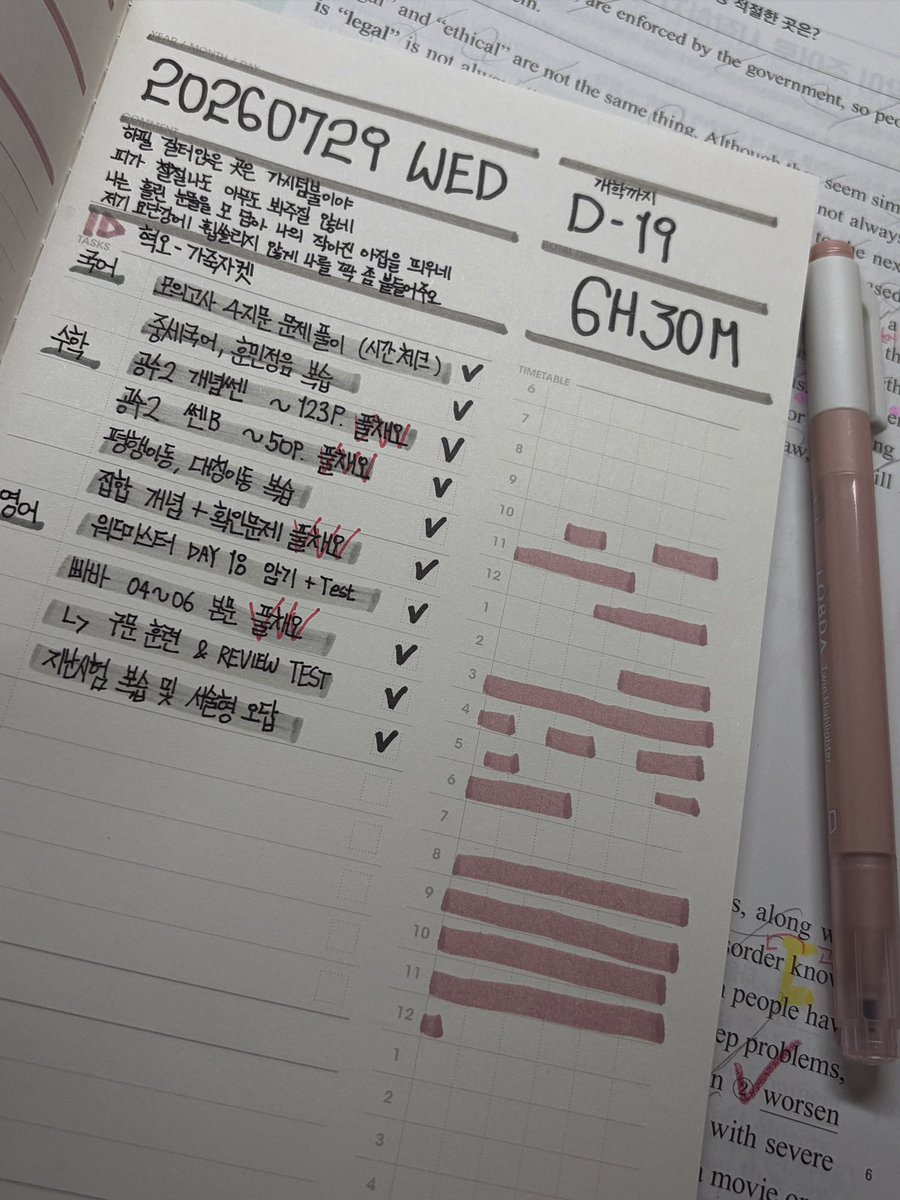 적절한 곳은?
are enforced by the government, so
"legal" and "ethical" are not the same thing. Although
is "legal" is not
seem
not always
to the next
YEAR / MONTH / DAY
20260729 WED
개학까지
D-19
6H30M
COMMENT
하필 걸터앉은 곳은 가시덤불이야
피가 철철나도 아무도 봐주질 않네
나는 흘린 눈물을 모 담아 나의 작아진 아집을 띄우네
저기 요단강에 휩쓸리지 않게 나를 꽉 좀 붙들어주오
혁오-가죽자켓
TASKS
국어
모의고사 4지문 문제풀이 (시간체크)
중세국어, 훈민정음 복습
수학
공수2 개념쎈 ~123P. 풀채오
공수2 쎈B ~50P. 풀채오
평행이동, 대칭이동 복습
집합 개념 + 확인문제 풀채오
영어
워드마스터 DAY 18 암기 + Test
빠바 04~06 본문 풀채오
↳ 구문 훈련 & REVIEW TEST
지난시험 복습 및 서술형 오답
TIMETABLE
6
7
8
9
10
11
12
1
2
3
4
5
6
7
8
9
10
11
12
1
2
3
4
Twin Highlighter
along
people have
problems,
② worsen
with severe
movie
6